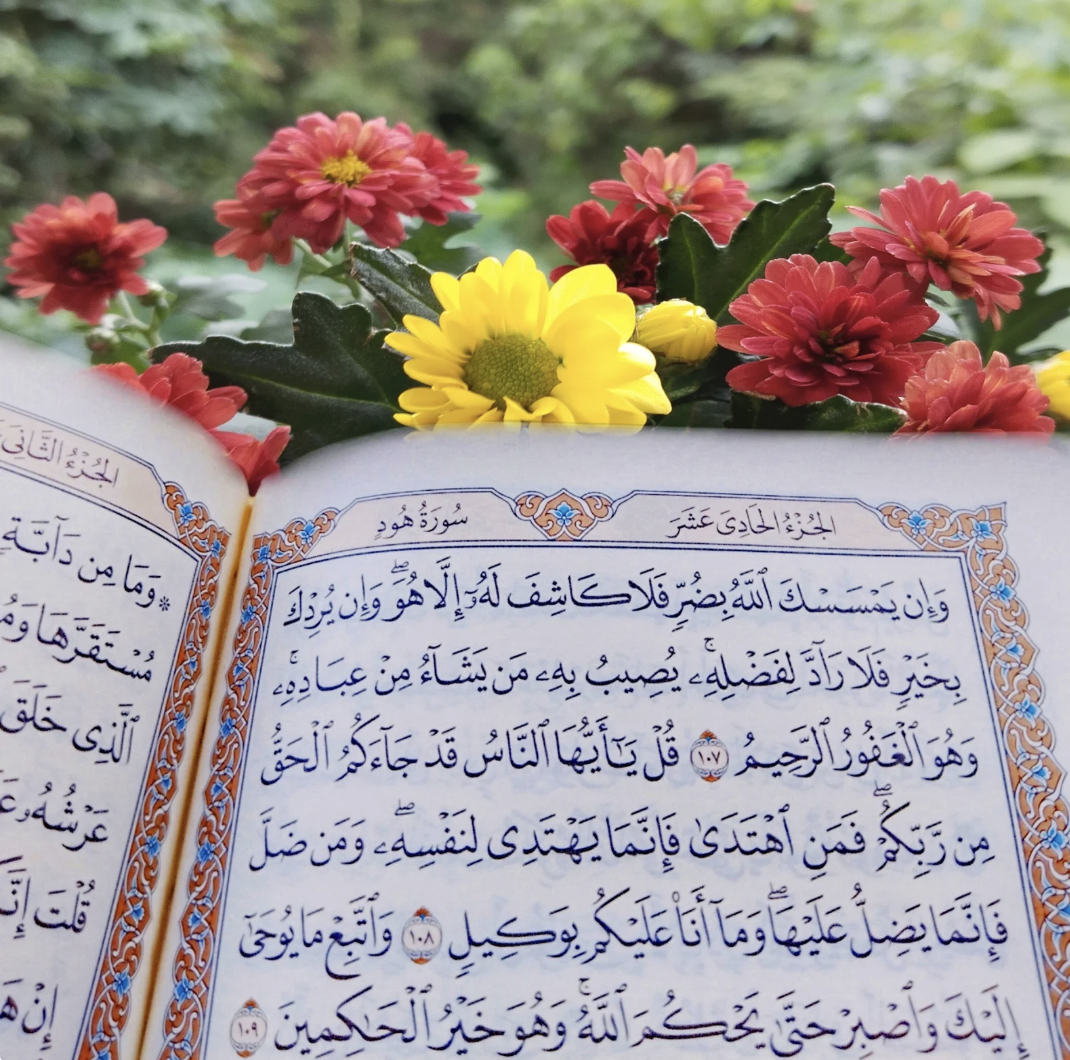 الجُزْءُ الحَادِىَ عَشَرَ
سُورَةُ هُودٍ
وَإِن يَمْسَسْكَ ٱللَّهُ بِضُرٍّ فَلَا كَاشِفَ لَهُۥٓ إِلَّا هُوَۖ وَإِن يُرِدْكَ
بِخَيْرٍ فَلَا رَآدَّ لِفَضْلِهِۦۚ يُصِيبُ بِهِۦ مَن يَشَآءُ مِنْ عِبَادِهِۦۚ
وَهُوَ ٱلْغَفُورُ ٱلرَّحِيمُ ١٠٧ قُلْ يَـٰٓأَيُّهَا ٱلنَّاسُ قَدْ جَآءَكُمُ ٱلْحَقُّ
مِن رَّبِّكُمْۖ فَمَنِ ٱهْتَدَىٰ فَإِنَّمَا يَهْتَدِى لِنَفْسِهِۦۖ وَمَن ضَلَّ
فَإِنَّمَا يَضِلُّ عَلَيْهَاۖ وَمَآ أَنَا۠ عَلَيْكُم بِوَكِيلٍ ١٠٨ وَٱتَّبِعْ مَا يُوحَىٰٓ
إِلَيْكَ وَٱصْبِرْ حَتَّىٰ يَحْكُمَ ٱللَّهُۚ وَهُوَ خَيْرُ ٱلْحَـٰكِمِينَ ١٠٩
الجُزْءُ الثَّانِى
* وَمَا مِن دَآبَّةٍ
مُسْتَقَرَّهَا
ٱلَّذِى خَلَقَ
عَرْشُهُۥ
قُلْتَ
إِنْ